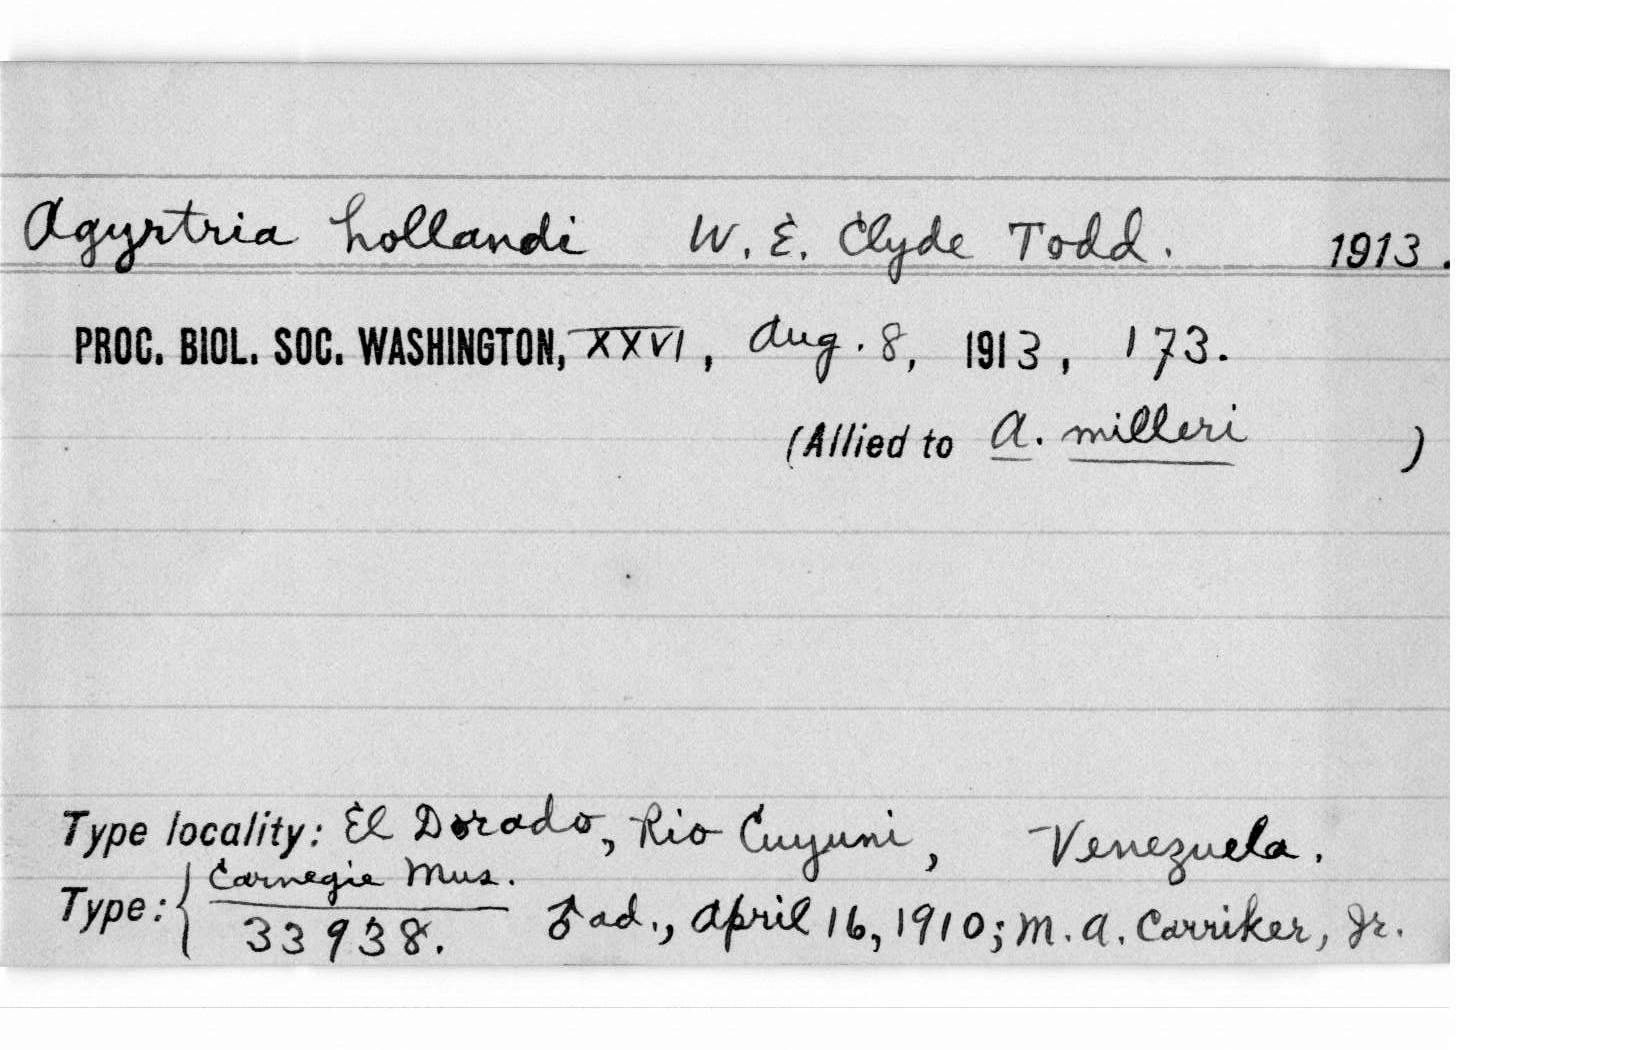 Agyrtria hollandi W. E. Clyde Todd. 1913.
PROC. BIOL. SOC. WASHINGTON, XXVI, Aug. 8, 1913, 173.
(Allied to A. milleri )
Type locality: El Dorado, Rio Cuyuni, Venezuela.
Type: { Carnegie Mus.
33938. ♂ ad., April 16, 1910; M. A. Carriker, Jr.